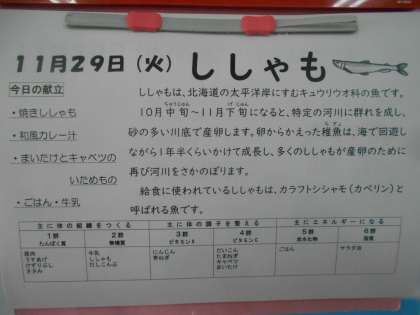 11月29日（火） ししゃも
今日の献立
・焼きししゃも
・和風カレー汁
・まいたけとキャベツの
いためもの
・ごはん・牛乳
ししゃもは、北海道の太平洋岸にすむキュウリウオ科の魚です。
10月中旬～11月下旬になると、特定の河川に群れを成し、
砂の多い川底で産卵します。卵からかえった稚魚は、海で回遊し
ながら1年半くらいかけて成長し、多くのししゃもが産卵のために
再び河川をさかのぼります。
給食に使われているししゃもは、カラフトシシャモ（カペリン）と
呼ばれる魚です。
主に体の組織をつくる 主に体の調子を整える 主にエネルギーになる
1群 2群 3群 4群 5群 6群
たんぱく質 無機質 ビタミンA ビタミンC 炭水化物 脂質
豚肉 牛乳 にんじん だいこん ごはん サラダ油
うすあげ ししゃも 青ねぎ たまねぎ
けずりぶし だしこんぶ キャベツ
まいたけ